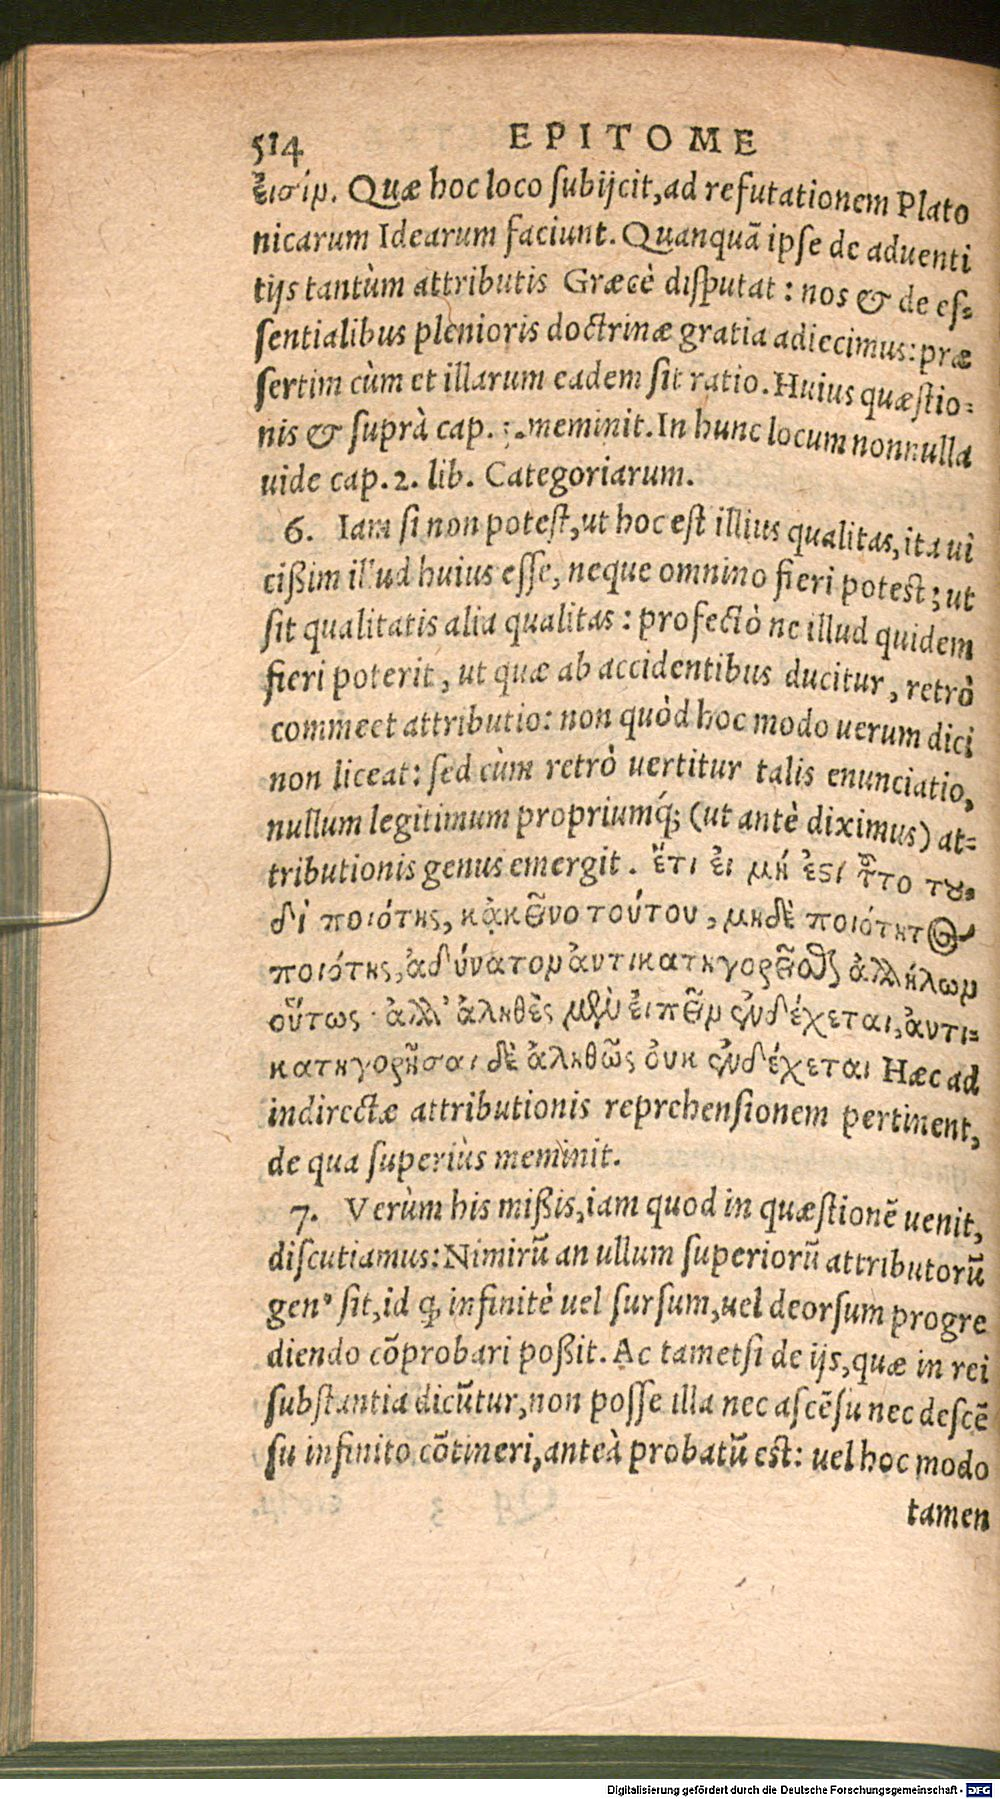 514 EPITOME
εἰσίν. Quæ hoc loco ſubijcit, ad refutationem Plato
nicarum Idearum faciunt. Quanquā ipſe de aduenti
tijs tantùm attributis Græcè diſputat: nos & de eſ-
ſentialibus plenioris doctrinæ gratia adiecimus: præ
ſertim cùm et illarum eadem ſit ratio. Huius quæſtio-
nis & ſuprà cap. meminit. In hunc locum nonnulla
uide cap. 2. lib. Categoriarum.
6. Iam ſi non poteſt, ut hoc eſt illius qualitas, ita ui
cißim illud huius eſſe, neque omnino fieri potest; ut
ſit qualitatis alia qualitas: profectò ne illud quidem
fieri poterit, ut quæ ab accidentibus ducitur, retrò
commeet attributio: non quòd hoc modo uerum dici
non liceat: ſed cùm retrò uertitur talis enunciatio,
nullum legitimum propriumq́; (ut antè diximus) at-
tributionis genus emergit. ἔτι εἰ μή ἐϛι τ͂το του-
δὶ ποιότης, κᾀκεῖνο τούτου, μηδὲ ποιότητος
ποιότης, ἀδύνατον ἀντικατηγορεῖσθαι ἀλλήλων
οὕτως· ἀλλ' ἀληθὲς μὲν εἰπεῖν ἐνδέχεται, ἀντι-
κατηγορῆσαι δὲ ἀληθῶς οὐκ ἐνδέχεται Hæc ad
indirectæ attributionis reprehenſionem pertinent,
de qua ſuperiùs meminit.
7. Verùm his mißis, iam quod in quæſtionē uenit,
diſcutiamus: Nimirū an ullum ſuperiorū attributorū
genꝰ ſit, id ꝙ infinitè uel ſurſum, uel deorſum progre
diendo cōprobari poßit. Ac tametſi de ijs, quæ in rei
ſubſtantia dicūtur, non poſſe illa nec aſcēſu nec deſcē
ſu infinito cōtineri, anteà probatū eſt: uel hoc modo
tamen
Digitalisierung gefördert durch die Deutsche Forschungsgemeinschaft - DFG